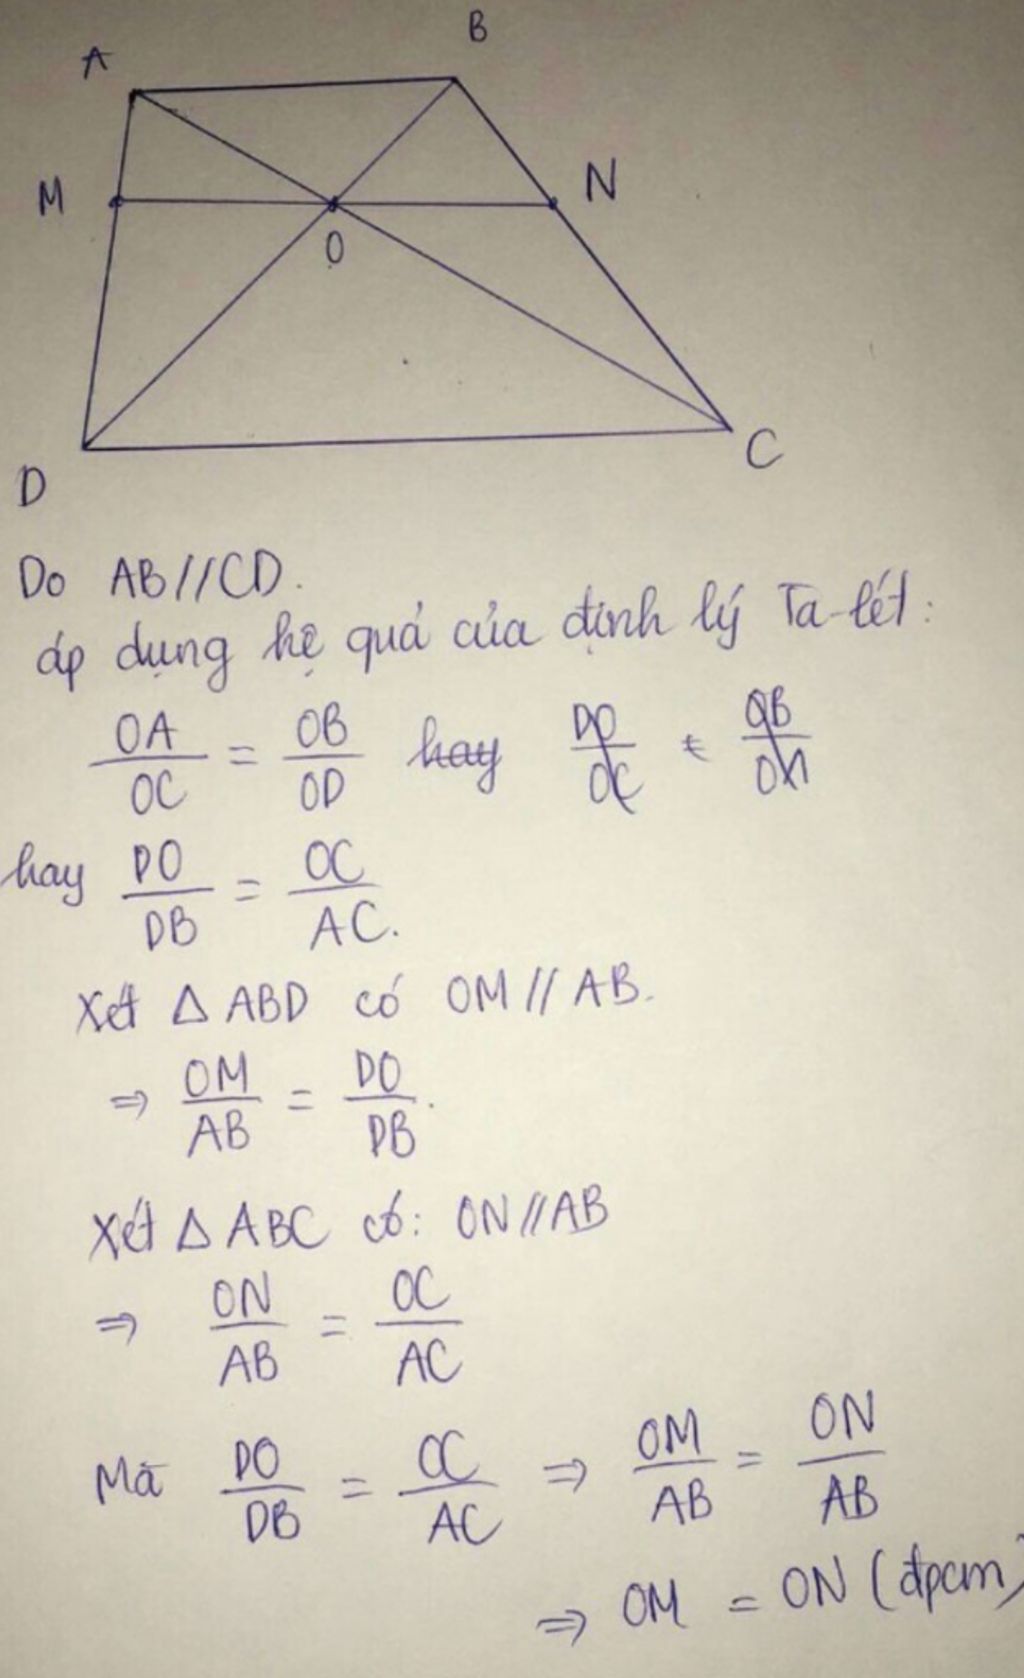 A
B
M
N
O
D
C
Do AB//CD.
áp dụng hệ quả của định lý Ta-lét:
OA/OC = OB/OD hay DO/OC = OB/ON
hay DO/DB = OC/AC.
Xét Δ ABD có OM // AB.
⇒ OM/AB = DO/DB.
Xét Δ ABC có: ON//AB
⇒ ON/AB = OC/AC
Mà DO/DB = OC/AC ⇒ OM/AB = ON/AB
⇒ OM = ON (đpcm)